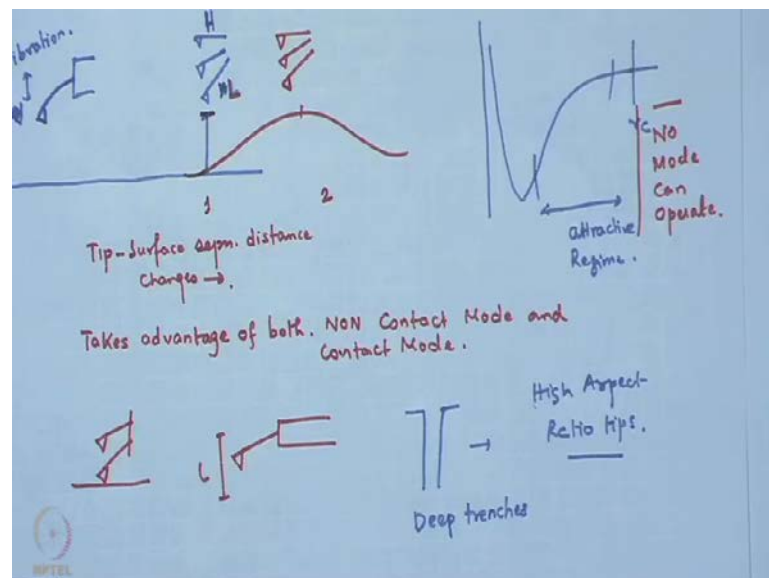 ibration.
H
L
1
2
Tip-Surface sepn. distance
changes →.
rc
No
Mode
Can
Operate.
attractive
Regime.
Takes advantage of both. NON Contact Mode and
Contact Mode.
L
Deep trenches
→
High Aspect-
Ratio tips.
NPTEL